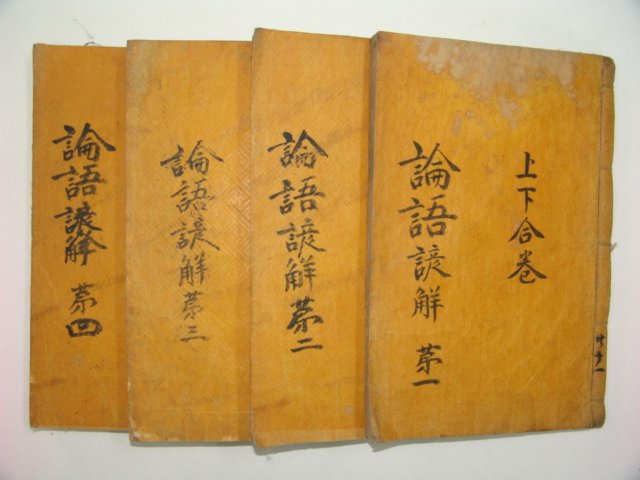 上下合卷
論語諺解 苐一
論語諺解 苐二
論語諺解 苐三
論語諺解 苐四